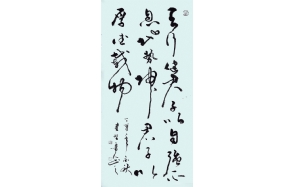 天行健君子以自強不
息地勢坤君子以
厚德載物